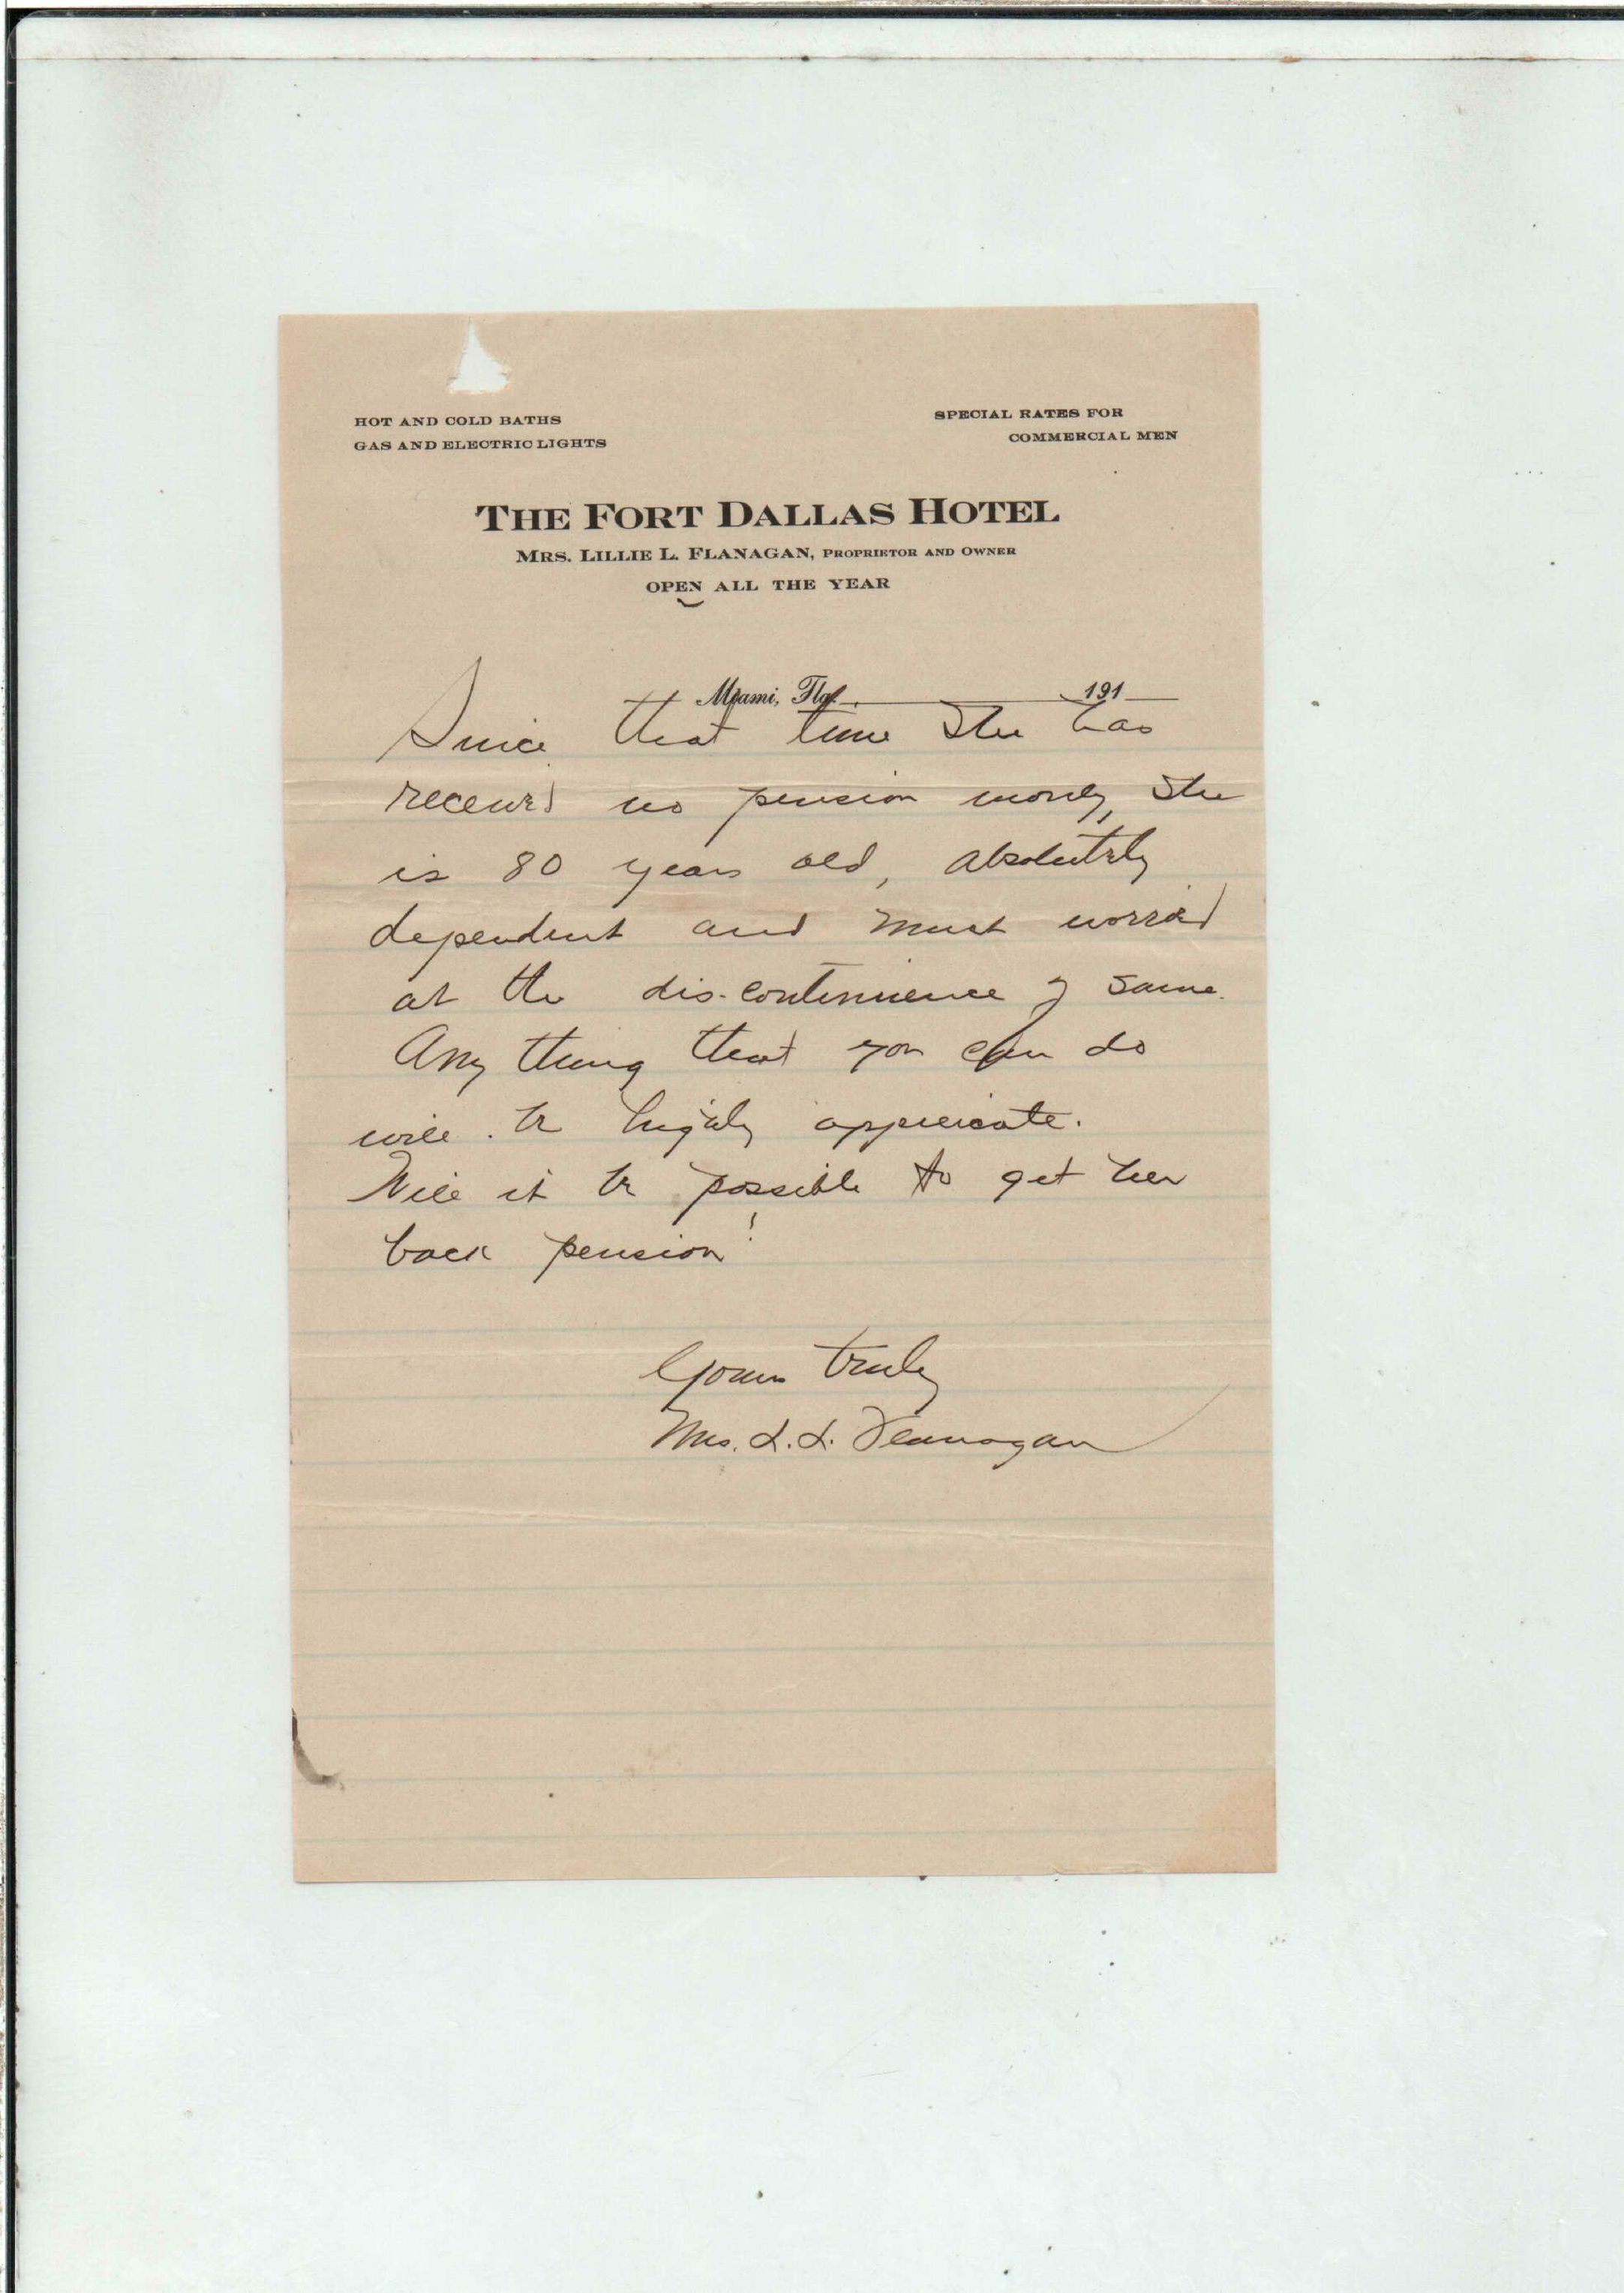 HOT AND COLD BATHS
GAS AND ELECTRIC LIGHTS
SPECIAL RATES FOR
COMMERCIAL MEN
THE FORT DALLAS HOTEL
MRS. LILLIE L. FLANAGAN, PROPRIETOR AND OWNER
OPEN ALL THE YEAR
Miami, Fla. 191
Since that time She has
received no pension money, She
is 80 years old, absolutely
dependent and most worried
at the dis-continuence of same.
Any thing that you can do
will be highly appreicate.
Will it be possible to get her
back pension?
Yours truly
Mrs. L. L. Flanagan